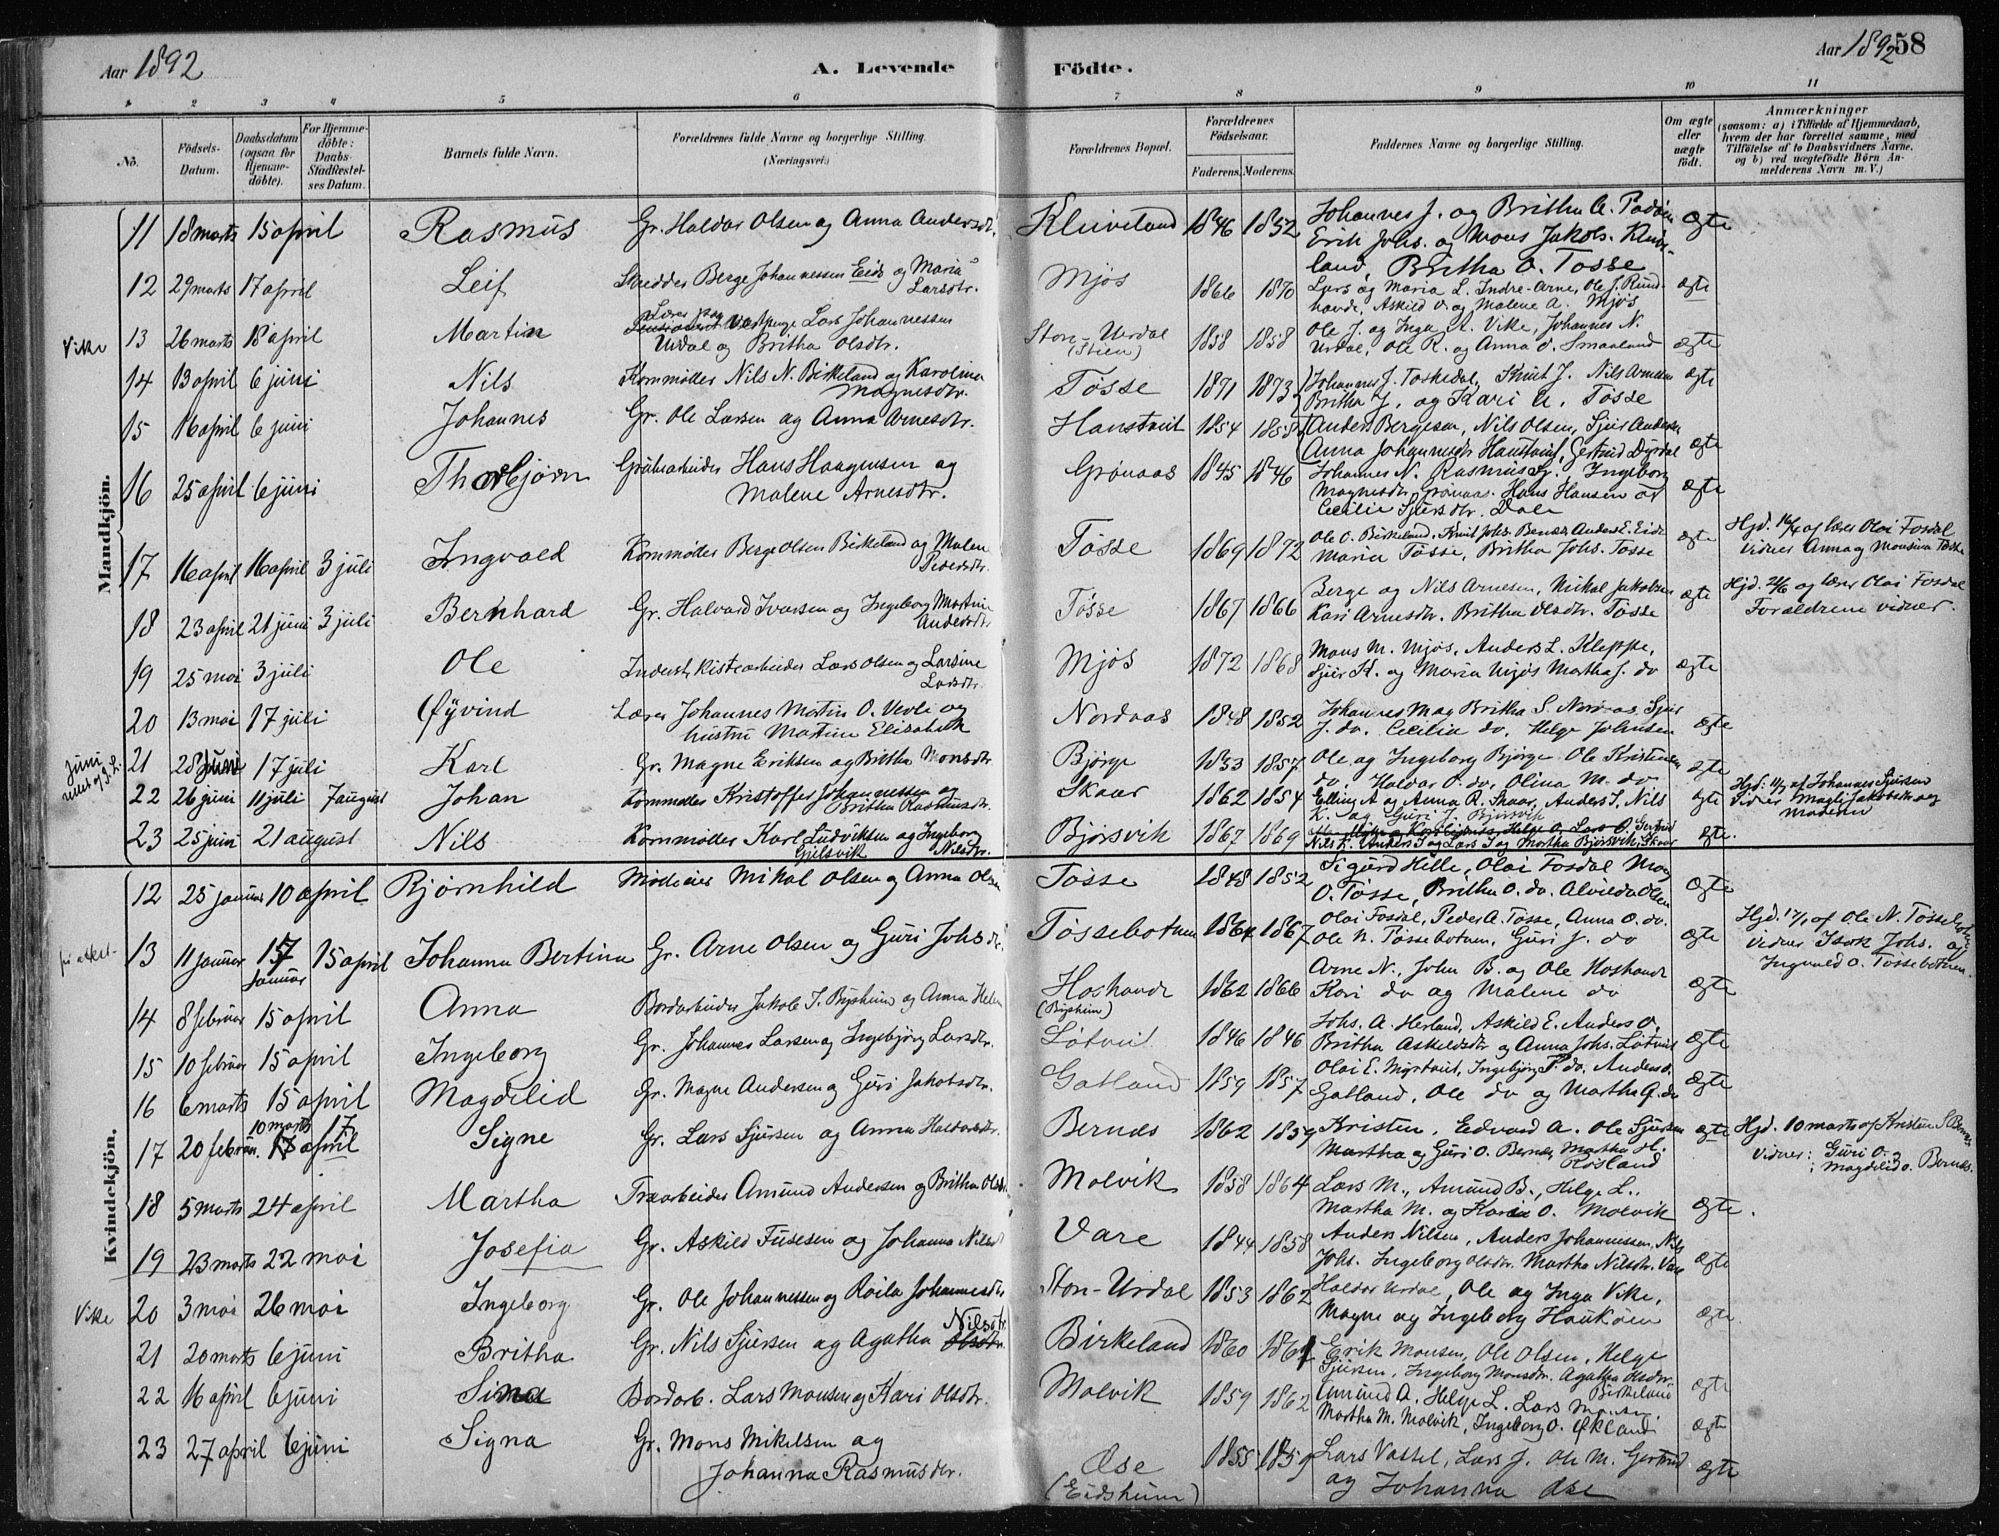 Aar 1892
A. Levende
Födte.
Aar 1892
58
1 2 3 4 5 6 7 8 9 10 11
No.
Födsels-Datum.
Daabsdatum (ogsaa for Hjemme-döbte).
For Hjemme-döbte: Daabs-Stadfæstel-ses Datum.
Barnets fulde Navn.
Forældrenes fulde Navne og borgerlige Stilling. (Næringsvei.)
Forældrenes Bopæl.
Forældrenes Födselsaar.
Faderens. Moderens.
Faddernes Navne og borgerlige Stilling.
Om ægte eller uægte födt.
Anmærkninger (saasom: a) i Tilfælde af Hjemmedaab, hvem der har forrettet samme, med Tilföielse af to Daabsvidners Navne. og b) ved uægtefödte Börn An-melderens Navn m. V.)
Mandkjön.
11 18 marts 15 april Rasmus Gr. Haldor Olsen og Anna Andersdtr. Kleiveland 1846 1852 Johannes J. og Britha A.
Erik Johs. og Mons Jakobs. Kleive-
land, Britha O. Tosse ægte
12 29 marts 17 april Leif Skredder Berge Johannessen Eide og Maria Larsdtr. Mjøs 1866 1870 Lars og Maria L. Indre-Arne, Ole J. Rund-
hovde, Askild O. og Malene A. Mjøs ægte
Vike 13 26 marts 18 april Martin Lars Johannessen
Urdal og Britha Olsdtr. Stor-Urdal (Stien) 1858 1858 Ole J. og Inga A. Vike, Johannes N.
Urdal, Ole R. og Anna O. Smaaland ægte
14 13 april 6 juni Nils Kornmøller Nils N. Birkeland og Karolina Magnesdtr. Tøsse 1871 1873 Johannes J. Toskedal, Knut J. Nils Arnesen
Britha J. og Kari A. Tøsse ægte
15 16 april 6 juni Johannes Gr. Ole Larsen og Anna Arnesdtr. Hanstveit 1854 1858 Anders Bergesen, Nils Olsen, Sjur Andersen
Anna Johannesdtr Hanstveit, Gertrud Dyrdal ægte
16 25 april 6 juni Thorbjørn Grubearbeider Hans Haagensen og
Malene Arnesdtr. Grønaas 1845 1846 Johannes N. Rasmus og Ingeborg
Magnesdtr. Grønaas. Hans Hansen og
Cecilie Sjursdtr. Dale ægte
17 16 april 16 april 3 juli Ingvald Kornmøller Berge Olsen Birkeland og Malene Pedersdtr. Tøsse 1869 1872 Ole O. Birkeland, Knut Johs. Bernes Anders E. Eide
Maria Tøsse, Britha Johs. Tosse ægte Hjd. 16/4 af lærer Olai Fosdal
vidner Anna og Monsina Tøsse
18 23 april 21 juni 3 juli Bernhard Gr. Halvard Ivarsen og Ingeborg Martine Andersdtr Tøsse 1867 1866 Berge og Nils Arnesen, Mikal Jakobsen
Kari Arnesdtr. Britha Olsdtr. Tøsse ægte Hjd. 21/6 og lærer Olai Fosdal
Forældrene vidner.
19 25 mai 3 juli Ole Inderst kistearbeider Lars Olsen og Larsine Larsdtr. Mjøs 1872 1868 Mons M. Mjøs, Anders L. Kleppe,
Sjur K. og Maria Mjøs Martha J. do ægte
20 13 mai 17 juli Øyvind Lærer Johannes Martin O. Vevle og
hustru Martine Elisabeth Nordaas 1848 1852 Johannes M og Britha S. Nordaas, Sjur
J. do. Cecilia do. Helge Johnsen ægte
21 28 juni 17 juli Karl Gr. Magne Eriksen og Britha Monsdtr Bjørge 1853 1857 Ole og Ingeborg Bjørge Ole Kristensen
do Haldor O. do, Olina M. do ægte
22 26 juni 11 juli 7 august Johan Kornmøller Kristoffer Johannessen og
Britha Rasmusdtr. Skaar 1862 1854 Elling A og Anna R. Skaar, Anders S. Nils
K. og Guri J. Bjørsvik ægte Hjd. 11/7 af Johannes Sjursen
vidner Magli Jakobsdtr og
Moderen
23 25 juni 21 august Nils Kornmøller Karl Ludviksen Gjelsvik og Ingeborg Nilsdtr. Bjørsvik 1867 1869 Nils K. Anders J og Lars J og Martha Bjørsvik, Skaar ægte.
Kvindekjön.
12 25 januar 10 april Bjørnhild Mødeier Mikal Olsen og Anna Olsen Tøsse 1848 1852 Sigurd Helle, Olai Fosdal
O. Tøsse, Britha O. do. Alvilda Olsen ægte
13 11 januar 17 januar 15 april Johanna Bertina Gr. Arne Olsen og Guri Johsdtr. Tøssebotnen 1864 1867 Olai Fosdal, Peder A. Tosse, Anna O. do.
Ole N. Tøssebotnen, Guri J. do ægte Hjd. 17/1 af Ole N. Tøssebotn
vidner Isak Johs. og
Ingvald O. Tøssebotnen.
14 8 februar 15 april Anna Bordarbeider Jakob I. Byshum og Anna Hoshovde (Byshum) 1862 1866 Arne N., John B. og Ole Hoshovde
Kari do og Malene do ægte
15 10 februar 15 april Ingeborg Gr. Johannes Larsen og Ingebjørg Larsdtr. Løtveit 1846 1846 Johs. A. Herland, Askild E. Anders O.
Britha Askildsdtr og Anna Johs. Løtveit ægte
16 6 marts 15 april Magdelid Gr. Magne Andersen og Guri Jakobsdtr. Gatland 1859 1857 Olai E. Myrtveit, Ingebjørg P. do. Anders O.
Gatland, Ole do og Martha G. do ægte
17 20 februar 10 marts 17 april Signe Gr. Lars Sjursen og Anna Halvorsdtr Bernes 1862 1859 Kristen, Edvard A. Ole Sjursen
Martha og Guri O. Bernes Martha H.
Røsland ægte Hjd. 10 marts af Kristen S Bernes
vidner: Guri O. og
Magdelid O. Bernes.
18 5 marts 24 april Martha Træarbeider Amund Andersen og Britha Olsdtr Molvik 1858 1864 Lars M., Amund B., Helge L.,
Martha M. og Kari O. Molvik ægte.
19 23 marts 22 mai Josefia Gr. Askild Fusesen og Johanna Nilsd Vare 1844 1858 Anders Nilsen, Anders Johannessen, Nils
Johs. Ingeborg Olsdtr. Martha Nilsdtr. Vare ægte
Vike 20 3 mai 26 mai Ingeborg Gr. Ole Johannessen og Roila Johannesdtr Stor-Urdal 1853 1862 Haldor Urdal, Ole og Inga Vike,
Magne og Ingeborg Haukøen ægte.
21 20 marts 6 juni Britha Gr. Nils Sjursen og Agatha Nilsdtr. Birkeland 1860 1861 Erik Monsen, Ole Olsen, Helge
Sjursen, Ingeborg Monsdtr. Agatha Olsdtr.
Birkeland ægte
22 16 april 6 juni Sina Bordarb. Lars Monsen og Kari Olsdtr. Molvik 1859 1862 Amund A. Helge L. Lars
Martha M. Molvik, Ingeborg O. Økland ægte
23 27 april 6 juni Signa Gr. Mons Mikelsen og
Johanna Rasmusdtr. Øse (Eidsheim) 1855 1859 Lars Vassel, Lars J. Ole M. Gertrud
og Johanna Øse ægte